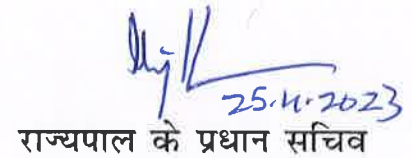 25.4.2023
राज्यपाल के प्रधान सचिव